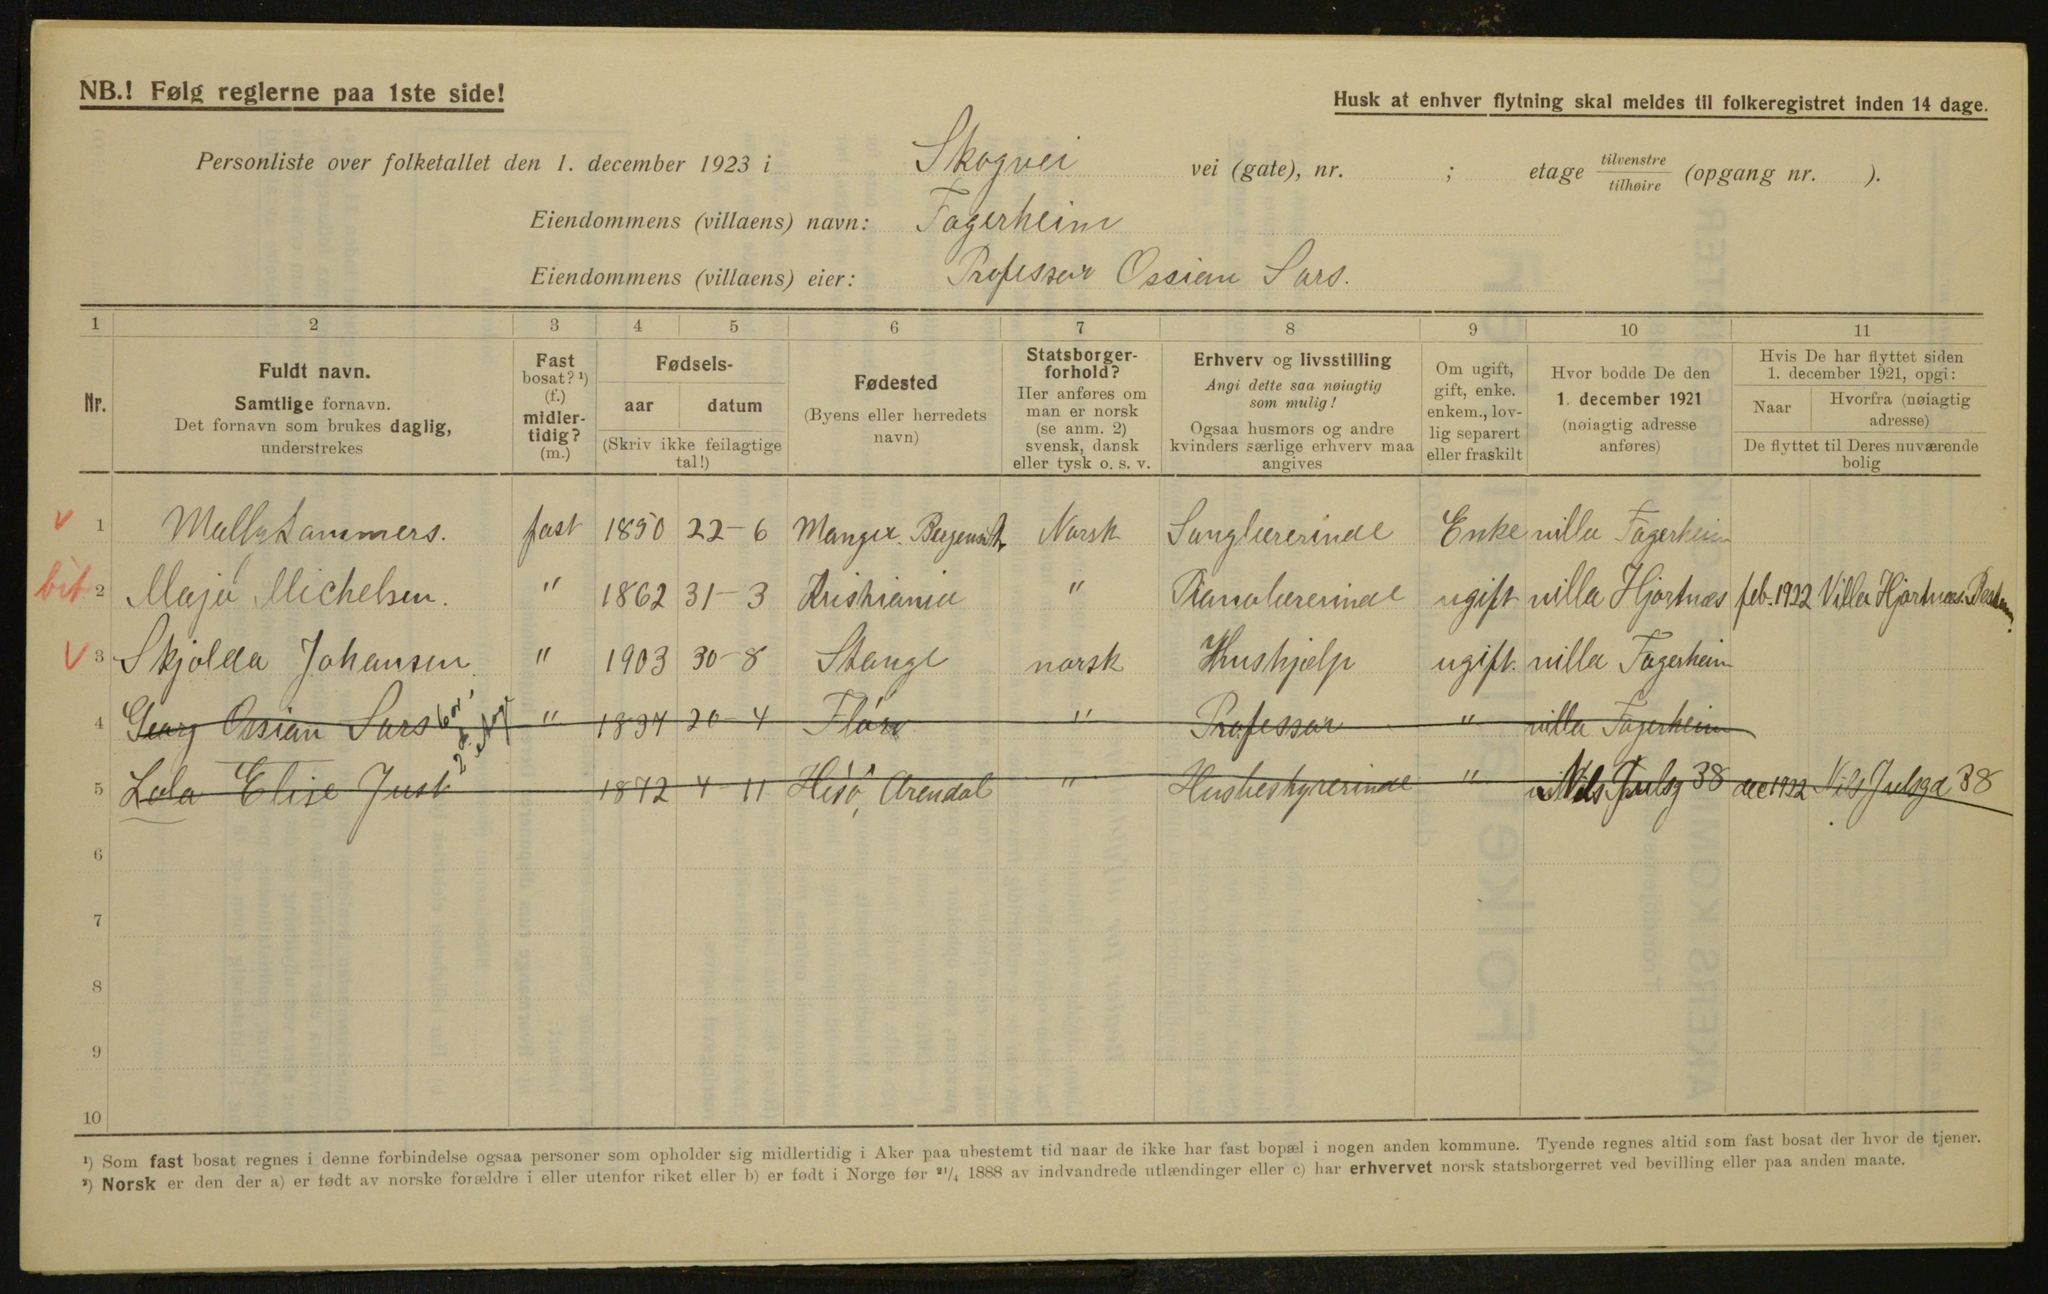 NB.! Følg reglerne paa 1ste side!
Husk at enhver flytning skal meldes til folkeregistret inden 14 dage.
Personliste over folketallet den 1. december 1923 i Skogvei vei (gate), nr. ; etage tilvenstre / tilhøire (opgang nr. ).
Eiendommens (villaens) navn: Fagerheim
Eiendommens (villaens) eier: Professor Ossian Sars.
1 2 3 4 5 6 7 8 9 10 11
Nr.
Fuldt navn.
Samtlige fornavn.
Det fornavn som brukes daglig,
understrekes
Fast
bosat? ¹)
(f.)
midler-
tidig?
(m.)
Fødsels-
aar datum
(Skriv ikke feilagtige
tal!)
Fødested
(Byens eller herredets
navn)
Statsborger-
forhold?
Her anføres om
man er norsk
(se anm. 2)
svensk, dansk
eller tysk o. s. v.
Erhverv og livsstilling
Angi dette saa nøiagtig
som mulig!
Ogsaa husmors og andre
kvinders særlige erhverv maa
angives
Om ugift,
gift, enke.
enkem., lov-
lig separert
eller fraskilt
Hvor bodde De den
1. december 1921
(nøiagtig adresse
anføres)
Hvis De har flyttet siden
1. december 1921, opgi:
Naar
Hvorfra (nøiagtig
adresse)
De flyttet til Deres nuværende
bolig
v 1 Mally Lammers. fast 1850 22-6 Manger. Norsk Sanglærerinde Enke villa Fagerheim
2 Maja Michelsen. " 1862 31-3 Kristiania " Pianolærerinde ugift villa Hjortnæs feb. 1922 Villa Hjortnæs.
v 3 Skjolda Johansen " 1903 30-8 Stange norsk Hushjælp ugift. villa Fagerheim
4 Georg Ossian Sars " 1837 20-4 Florø " Professor " villa Fagerheim
5 Lola Elise Just 1872 4-11 Hisö, Arendal " Husbestyrerinde " Nils Julsg 38 dec 1922 Nils Julsgd 38
6
7
8
9
10
¹) Som fast bosat regnes i denne forbindelse ogsaa personer som opholder sig midlertidig i Aker paa ubestemt tid naar de ikke har fast bopæl i nogen anden kommune. Tyende regnes altid som fast bosat der hvor de tjener.
²) Norsk er den der a) er født av norske forældre i eller utenfor riket eller b) er født i Norge før ²¹/₄ 1888 av indvandrede utlændinger eller c) har erhvervet norsk statsborgerret ved bevilling eller paa anden maate.